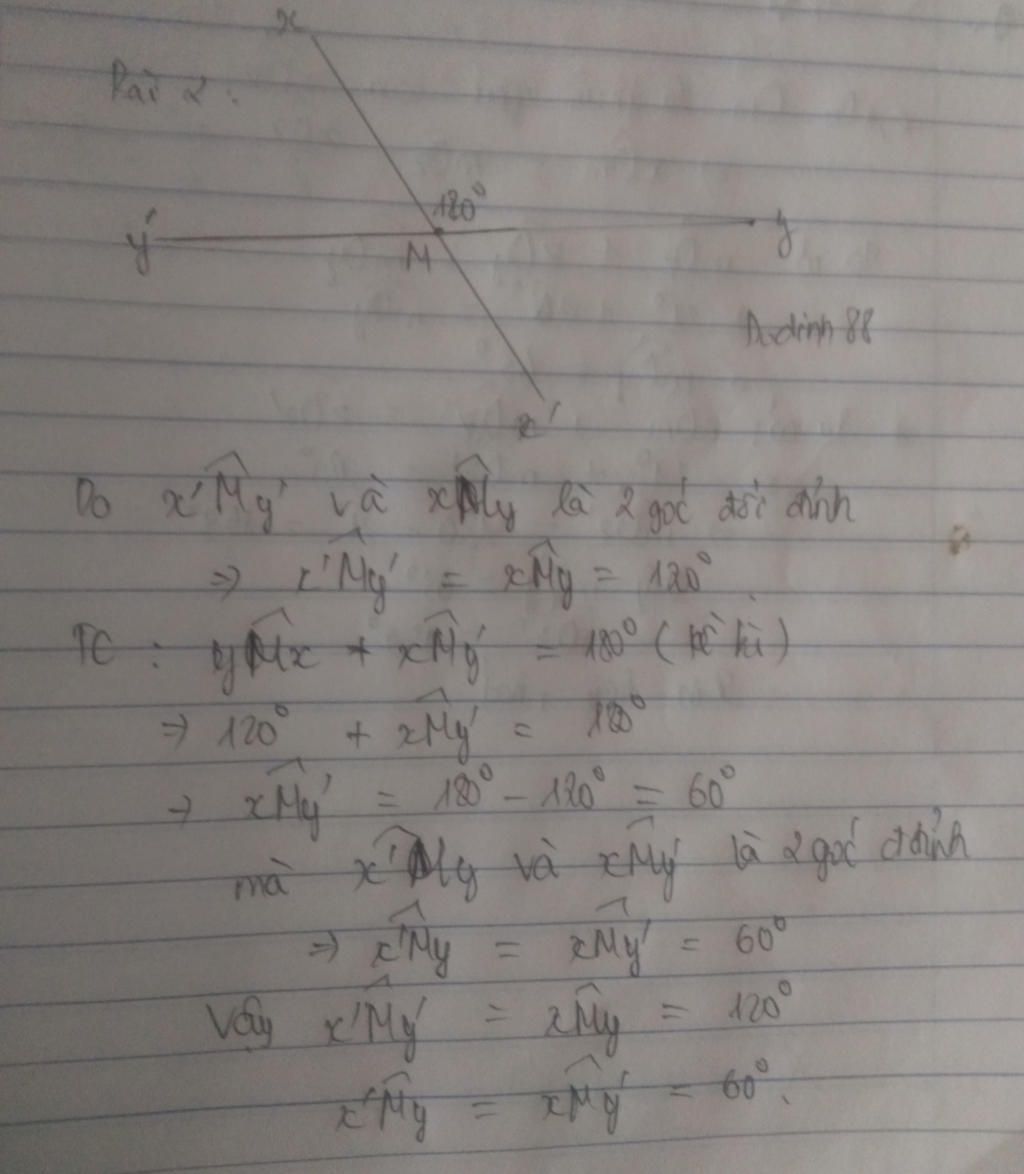 x
Bài 2 :
120°
y'
M
y
Audinh88
x'
Do x'My' và xMy là 2 góc đối đỉnh
⇒ x'My' = xMy = 120°
TC : yMx + xMy' = 180° (kề bù)
⇒ 120° + xMy' = 180°
→ xMy' = 180° - 120° = 60°
mà x'My và xMy' là 2 góc đ đỉnh
⇒ x'My = xMy' = 60°
Vậy x'My' = xMy = 120°
x'My = xMy' = 60°.